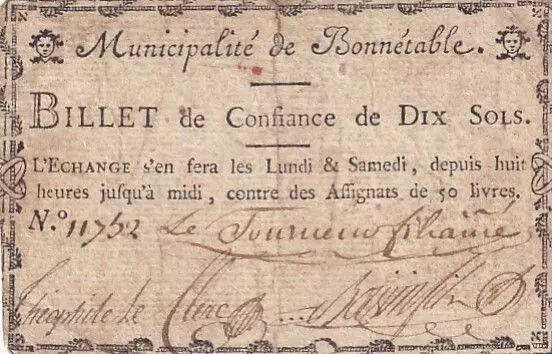 Municipalité de Bonnétable.
BILLET de Confiance de DIX SOLS.
L'ECHANGE s'en fera les Lundi & Samedi, depuis huit
heures jusqu'à midi, contre des Assignats de 50 livres.
N.º 11752 Le Tourneur fils ainé
Théophile Le Clerc